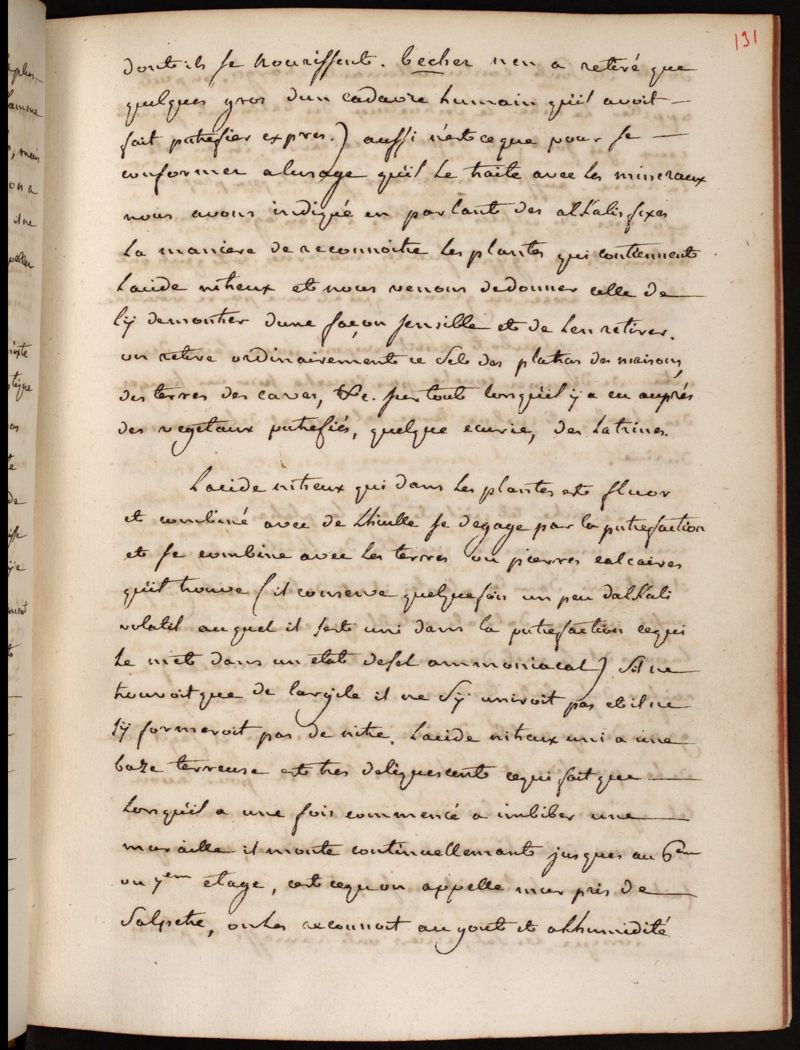 191
dont ils se nourrissent. becher n'en a retiré que
quelques gros d'un cadavre humain qu'il avoit —
fait putrefier expres.) aussi n'est ce que pour se —
conformer a l'usage qu'il le traite avec les mineraux
nous avons indiqué en parlant des alkalis fixes
la maniere de reconnoitre les plantes qui contiennent
l'acide nitreux et nous venons de donner celle de —
l'y demontrer d'une façon sensille et de l'en retirer.
on retire ordinairement ce sel des platras des maisons,
des terres des caves, &c. surtout lorsqu'il y a eu auprés
des vegetaux putrefiés, quelque ecurie, des latrines.
L'acide nitreux qui dans les plantes est fluor
et combiné avec de l'huille se degage par la putrefaction
et se combine avec les terres ou pierres calcaires
qu'il trouve (il conserve quelquefois un peu d'alkali
volatil auquel il s'est uni dans la putrefaction ce qui
le met dans un etat de sel ammoniacal) s'il ne
trouvoit que de l'argile il ne s'y uniroit pas et il ne
s'y formeroit pas de nitre. L'acide nitreux uni a une
baze terreuse est tres deliquescent ce qui fait que —
lorsqu'il a une fois commencé a imbiber une —
muraille il monte continuellement jusques au 6em
ou 7em etage, c'est ce qu'on appelle mur pris de —
salpetre, on les reconnoit au gout et a l'humidité